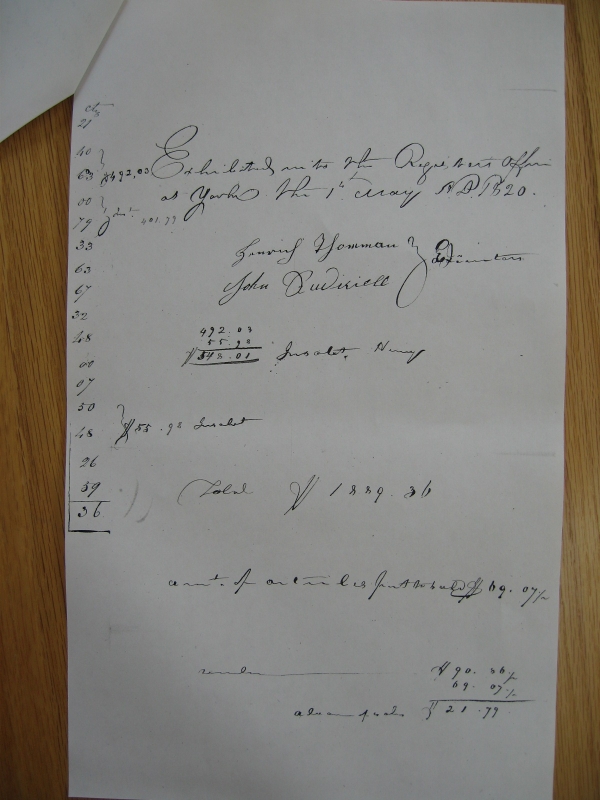 cts
21
40
63 } $492,03
00
79 } 401.79
33
63
67
32
48
00
07
50
48 } $55.98 Insolet
26
59
36
Exhibited into the Registers Office
at York the 1st May A.D. 1820.
Henrich Thomman
John Rudisiell
492.03
55.98
$548.01 Insolet.
Total $1889.36
amt. of articles $69.07½
$90.86½
69.07½
$21.79